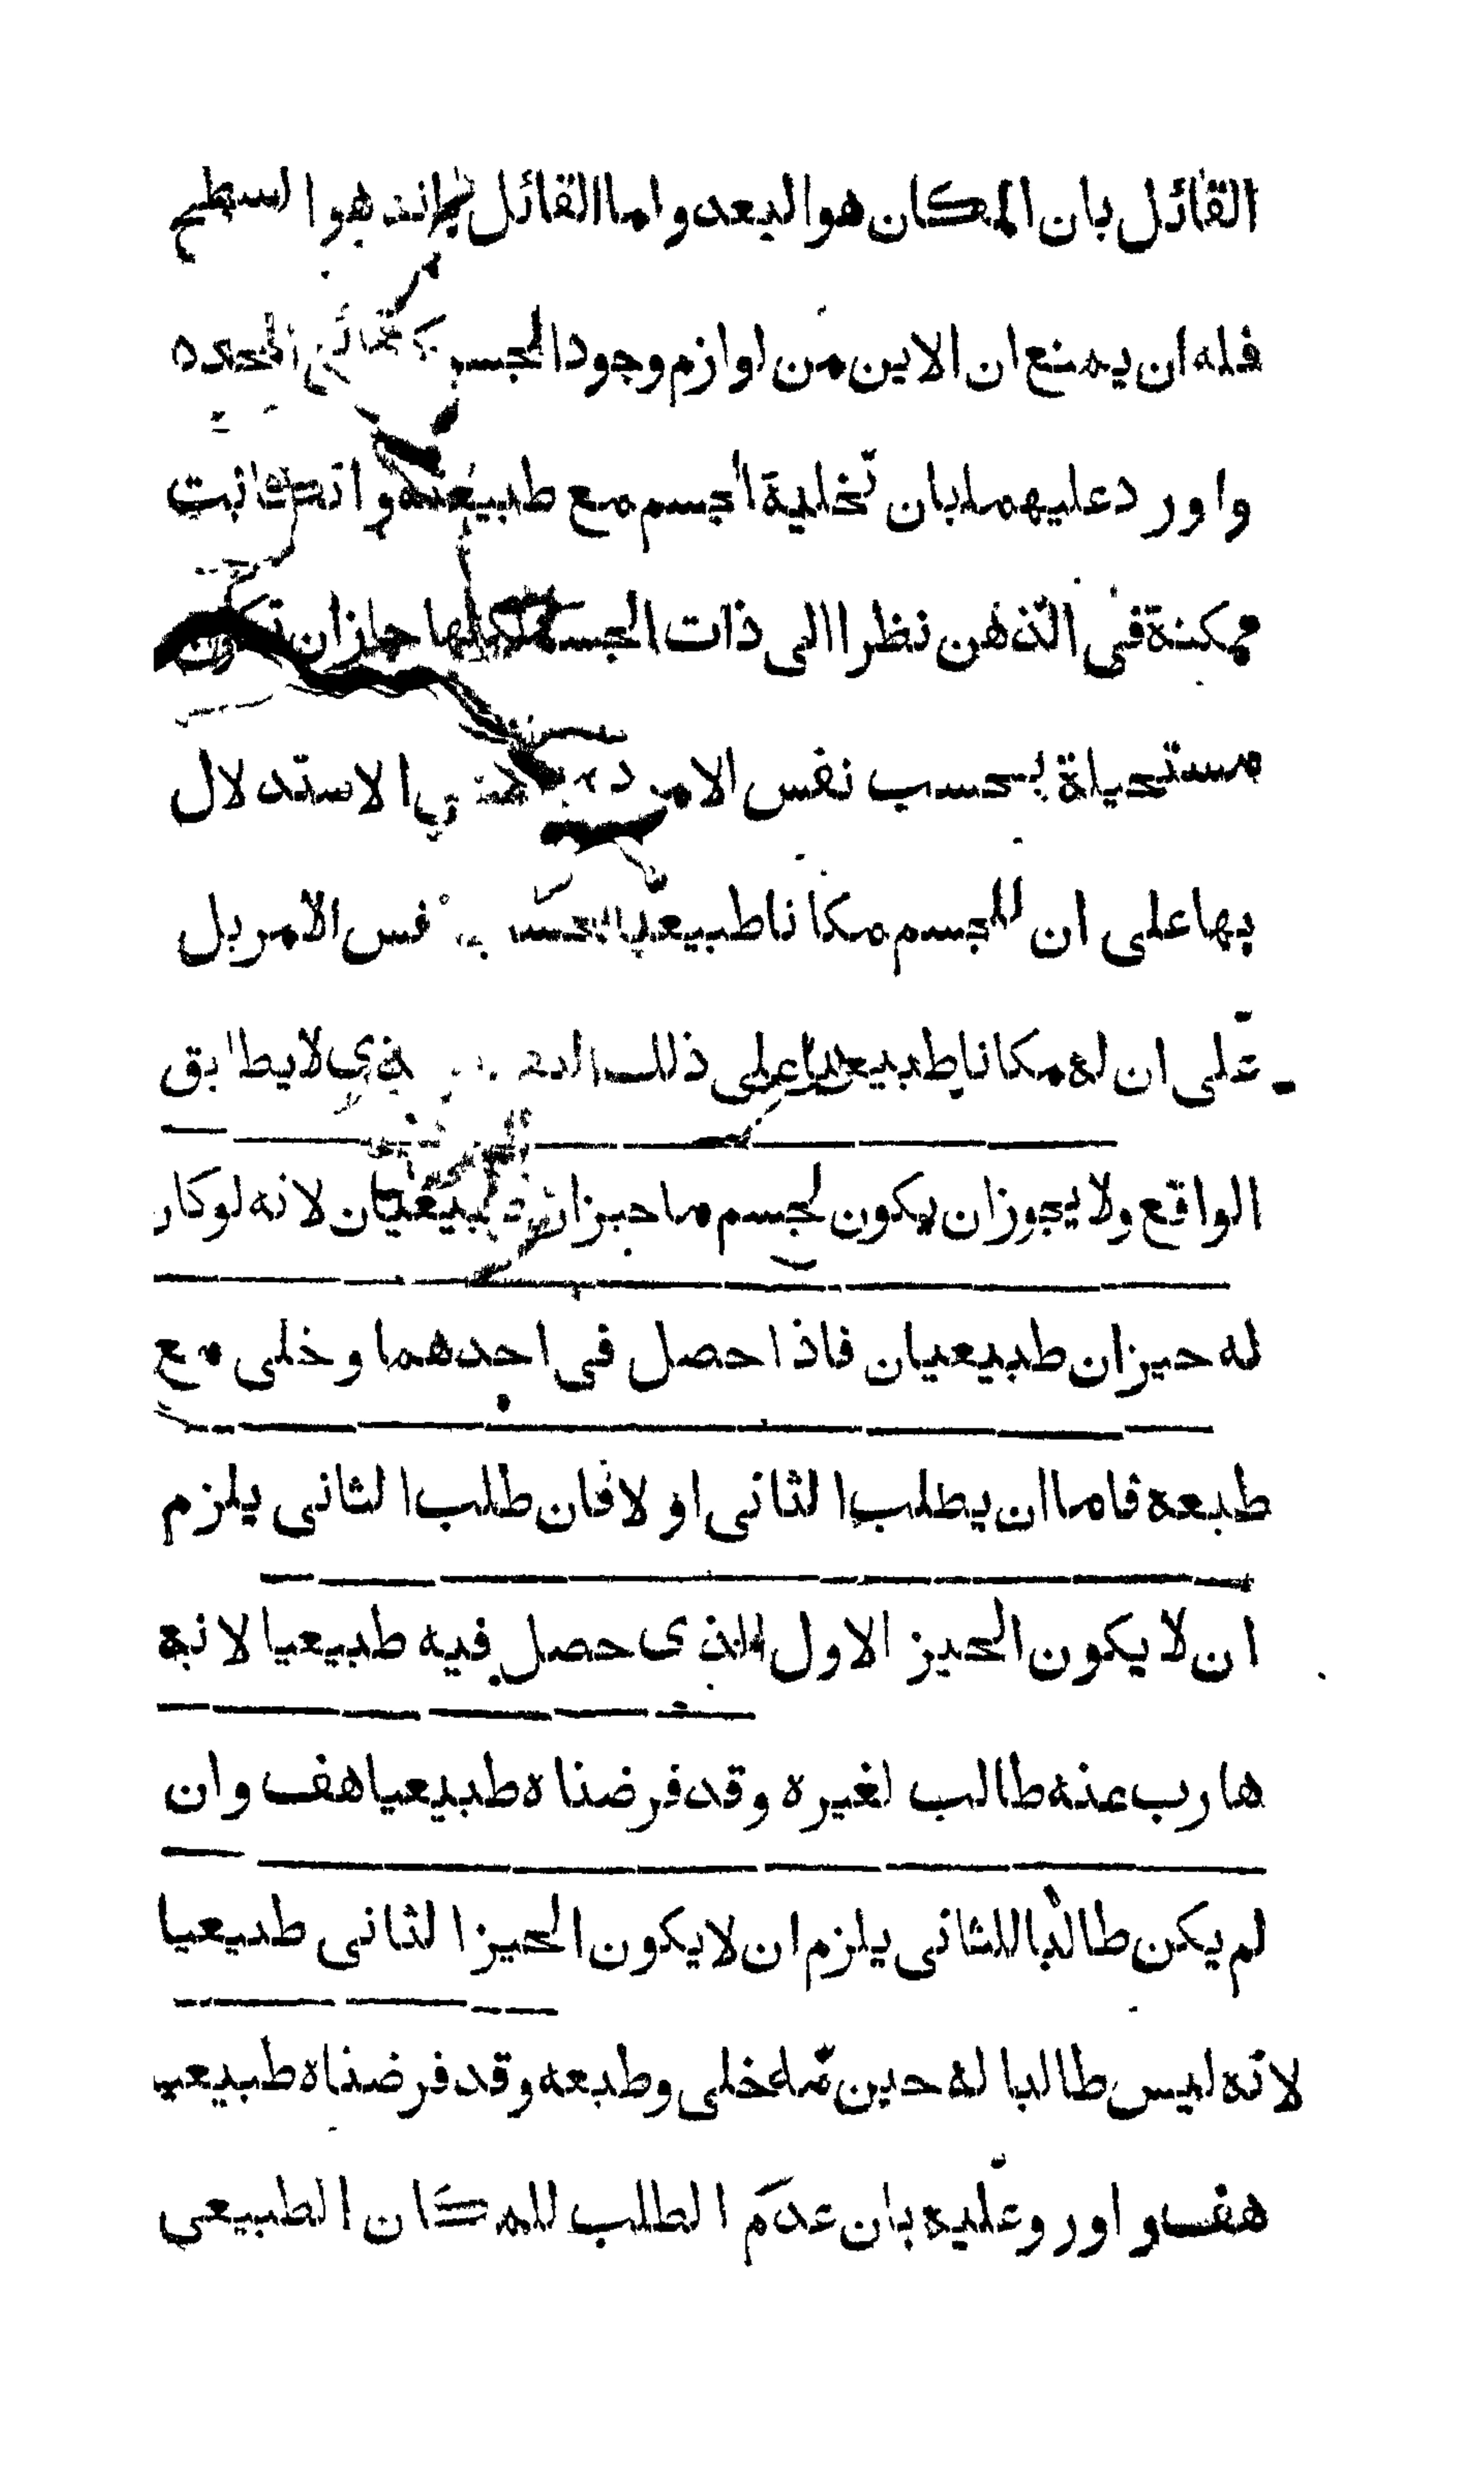 القائل بان المكان هو البعد واما القائل بانه هو السطح
فله ان يمنع ان الاين من لوازم وجود الجسم كما في المحدد
واورد عليهما بان تخلية الجسم مع طبيعته وان كانت
ممكنة فى الذهن نظرا الى ذات الجسم لكنها جاز ان تكون
مستحيلة بحسب نفس الامر الاستدلال
بها على ان للجسم مكانا طبيعيا بحسب نفس الامر بل
على ان له مكانا طبيعيا على ذلك لا يطابق
الواقع ولا يجوز ان يكون لجسم ما حيزان طبيعيان لانه لو كان
له حيزان طبيعيان فاذا حصل فى احدهما وخلى مع
طبعه فاما ان يطلب الثانى او لا فان طلب الثانى يلزم
ان لا يكون الحيز الاول الذى حصل فيه طبيعيا لانه
هارب عنه طالب لغيره وقد فرضناه طبيعيا هف وان
لم يكن طالبا للثانى يلزم ان لا يكون الحيز الثانى طبيعيا
لانه ليس طالبا له حين ما خلى وطبعه وقد فرضناه طبيعيا
هف واورد عليه بان عدم الطلب للمكان الطبيعى